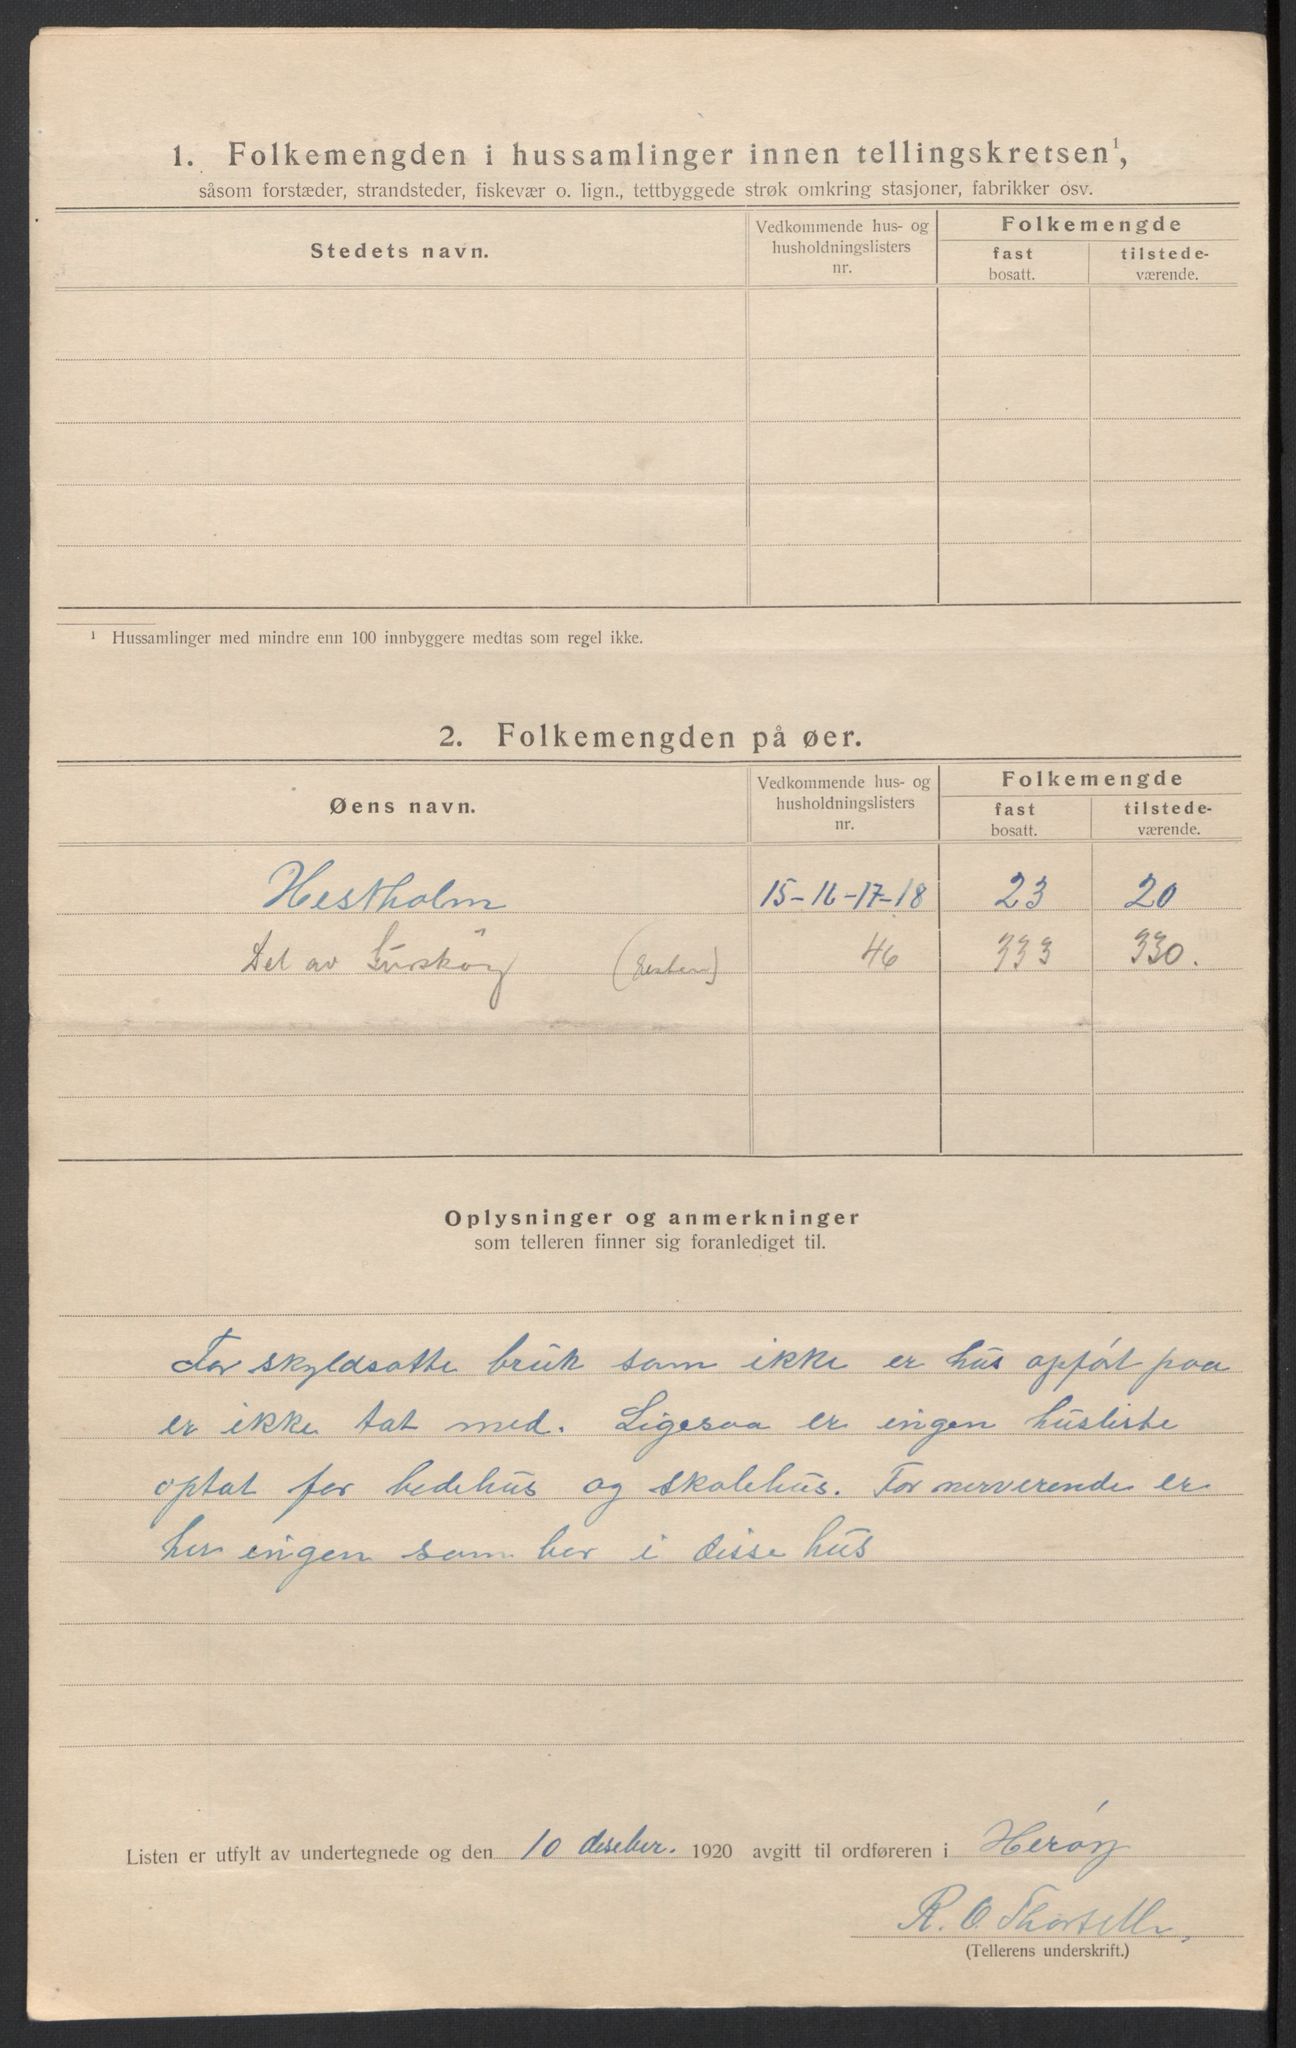 1. Folkemengden i hussamlinger innen tellingskretsen¹,
såsom forstæder, strandsteder, fiskevær o. lign., tettbyggede strøk omkring stasjoner, fabrikker osv.
Stedets navn.
Vedkommende hus- og husholdningslisters nr.
Folkemengde
fast bosatt.
tilstede-værende.
¹ Hussamlinger med mindre enn 100 innbyggere medtas som regel ikke.
2. Folkemengden på øer.
Øens navn.
Vedkommende hus- og husholdningslisters nr.
Folkemengde
fast bosatt.
tilstede-værende.
Hestholm 15-16-17-18 23 20
Del av Gurskøy (Resten) 46 333 330.
Oplysninger og anmerkninger
som telleren finner sig foranlediget til.
For skyldsatte bruk som ikke er hus opført paa
er ikke tat med. Ligesaa er ingen husliste
optat for bedehus og skolehus. For nerverende er
her ingen som bor i disse hus
Listen er utfylt av undertegnede og den 10 deseber. 1920 avgitt til ordføreren i Herøy
R. O.
(Tellerens underskrift.)